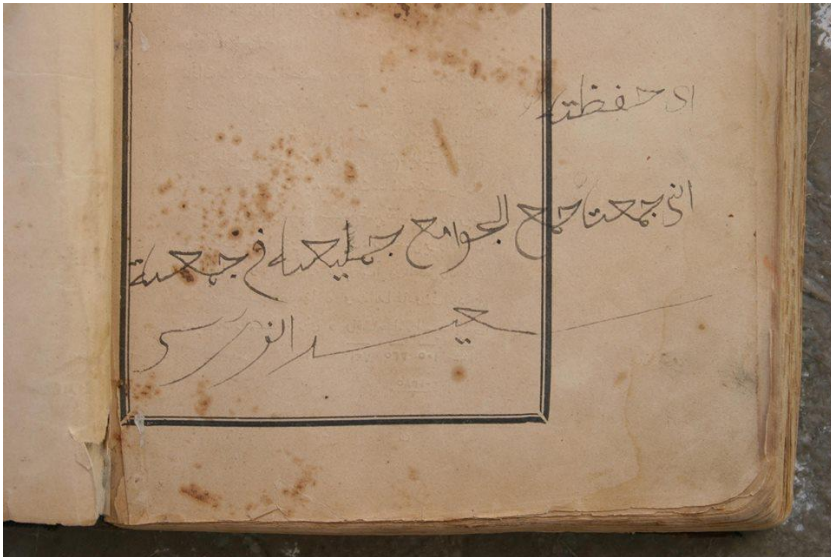 اى حفظته
انى جمعت جمع الجوامع جمليعه فى جمعة
سعيد النورسى